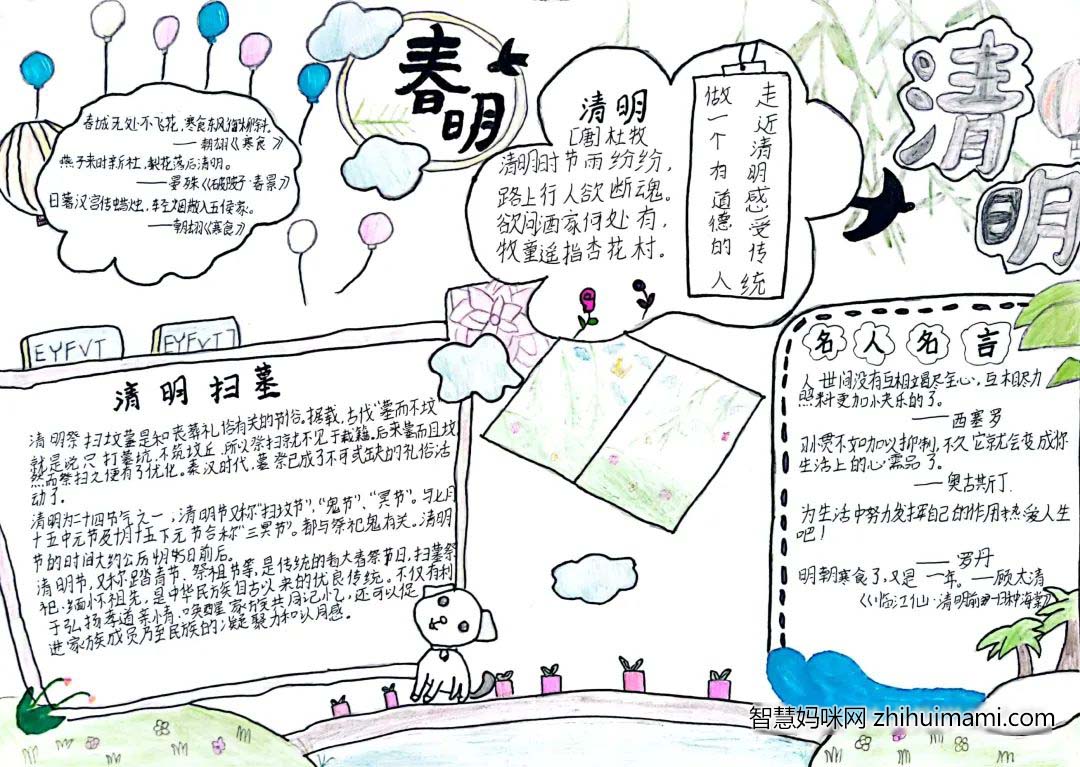 春明
清明
春城无处不飞花,寒食东风御柳斜。
——朝翃《寒食》
燕子来时新社,梨花落后清明。
——晏殊《破阵子·春景》
日暮汉宫传蜡烛,轻烟散入五侯家。
——朝翃《寒食》
清明
[唐]杜牧
清明时节雨纷纷,
路上行人欲断魂。
欲问酒家何处有,
牧童遥指杏花村。
走近清明感受传统
做一个有道德的人
EYFVT
EYFVT
清明扫墓
清明祭扫坟墓是和丧葬礼俗有关的节俗。据载,古代“墓而不坟”
就是说只打墓坑,不筑坟丘,所以祭扫就不见于载籍。后来墓而且坟,
然而祭扫之便有了优化。秦汉时代,墓祭已成了不可或缺的礼俗活
动了。
清明为二十四节气之一,清明节又称“扫坟节”,“鬼节”、“冥节”。与七月
十五中元节及十月十五下元节合称“三冥节”。都与祭祀鬼有关。清明
节的时间大约公历4月5日前后。
清明节,又称踏青节、祭祖节等,是传统的春祭节日,扫墓祭
祀、缅怀祖先,是中华民族自古以来的优良传统。不仅有利
于弘扬孝道亲情、唤醒家族共同记忆,还可以促
进家族成员乃至民族的凝聚力和认同感。
名人名言
人世间没有互相竭尽全心,互相尽力
照料更加快乐的了。
——西塞罗
习惯不如加以抑制,不久它就会变成你
生活上的必需品了。
——奥古斯丁
为生活中努力发挥自己的作用热爱人生
吧!
——罗丹
明朝寒食了,又是一年。——顾太清
《临江仙·清明前一日种海棠》
智慧妈咪网 zhihuimami.com